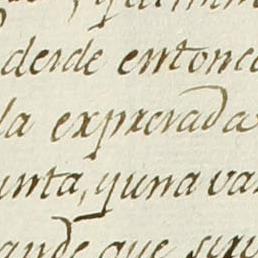 desde entonce
la expresada
unta, y una va
ande que